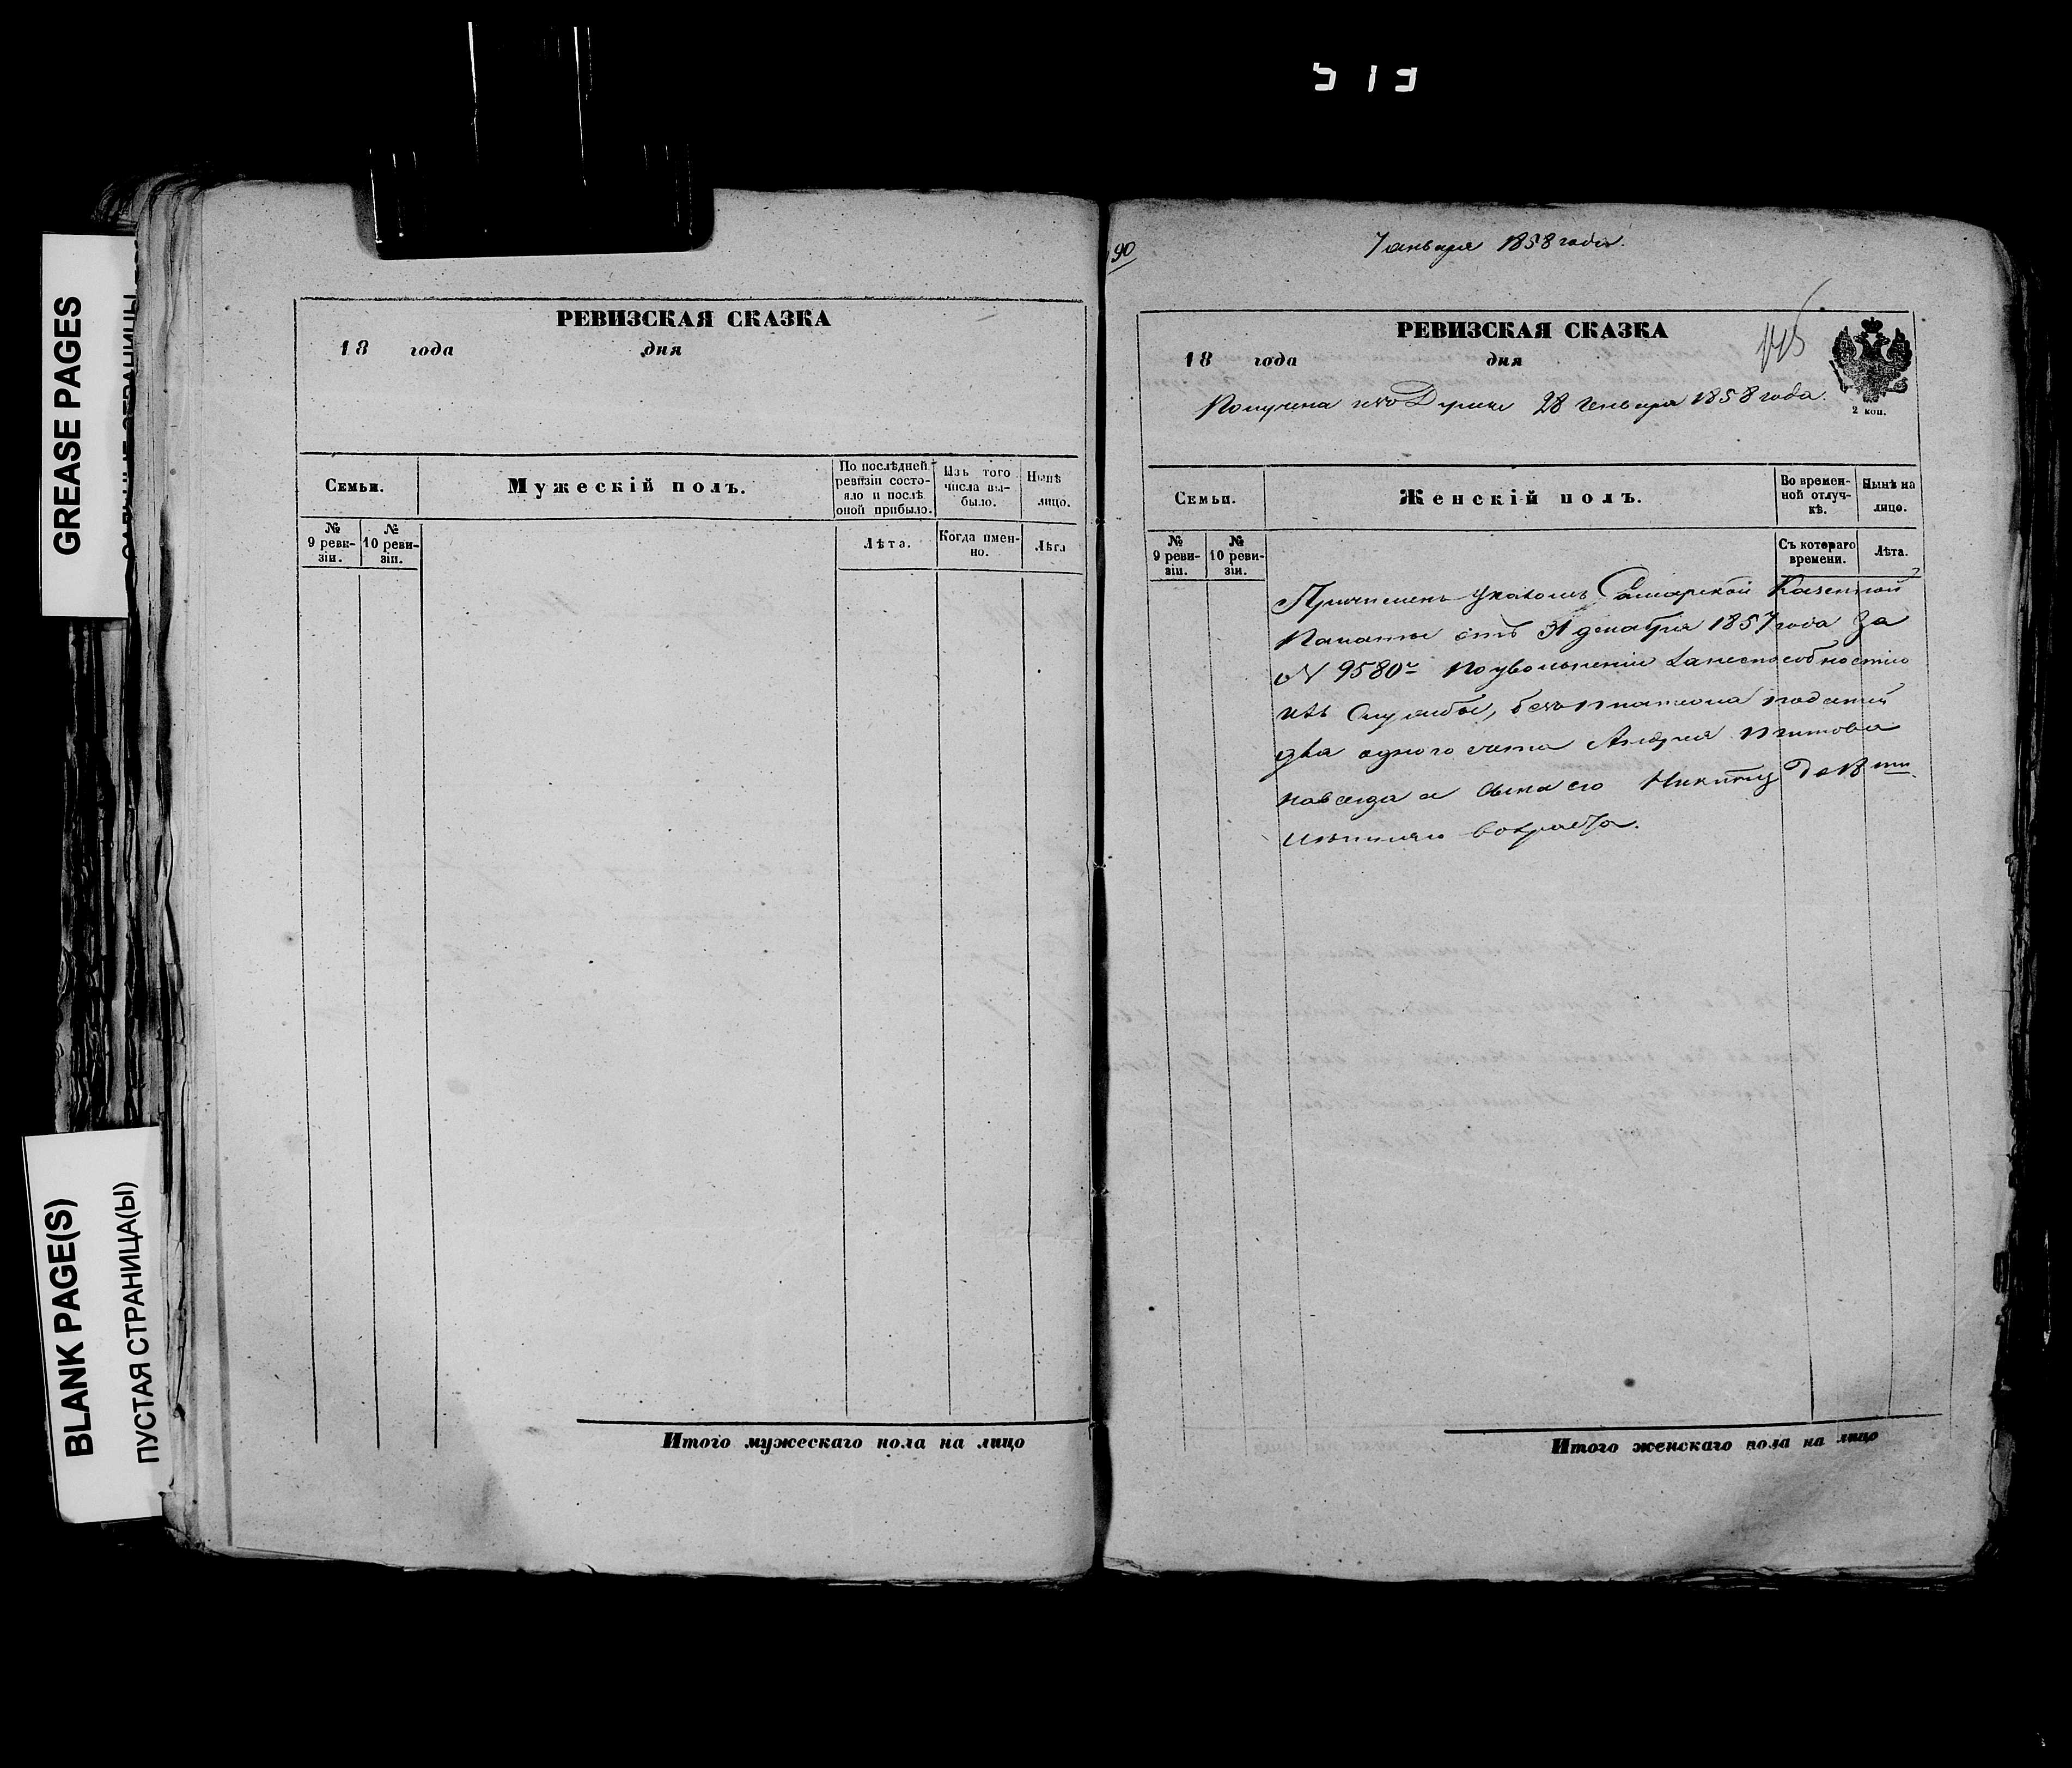 519
GREASE PAGES
BLANK PAGE(S)
ПУСТАЯ СТРАНИЦА(Ы)
РЕВИЗСКАЯ СКАЗКА
18 года дня
Семьи.
Мужескій полъ.
По послѣдней ревизіи состо-
яло и послѣ
оной прибыло.
Изъ того
числа вы-
было.
Нынѣ
лицо.
№
9 реви-
зіи.
№
10 реви-
зіи.
Лѣта.
Когда имен-
но.
Лѣта
Итого мужескаго пола на лицо
90
7 января 1858 года.
РЕВИЗСКАЯ СКАЗКА
18 года дня
2 коп.
Получена 28 Генваря 1858 года.
Семьи.
Женскій полъ.
Во времен-
ной отлуч-
кѣ.
Нынѣ на
лицо.
№
9 реви-
зіи.
№
10 реви-
зіи.
Съ котораго
времени.
Лѣта.
Причисленъ указомъ Самарской Казенной
Палаты отъ 31 декабря 1857 года За
№ 9580 по увольненіи Занеспособностію
изъ Службы, безъ платежа податей
для одного счета Андрея Титова
навсегда а сына его Никиту до
лѣтняго возраста.
Итого женскаго пола на лицо